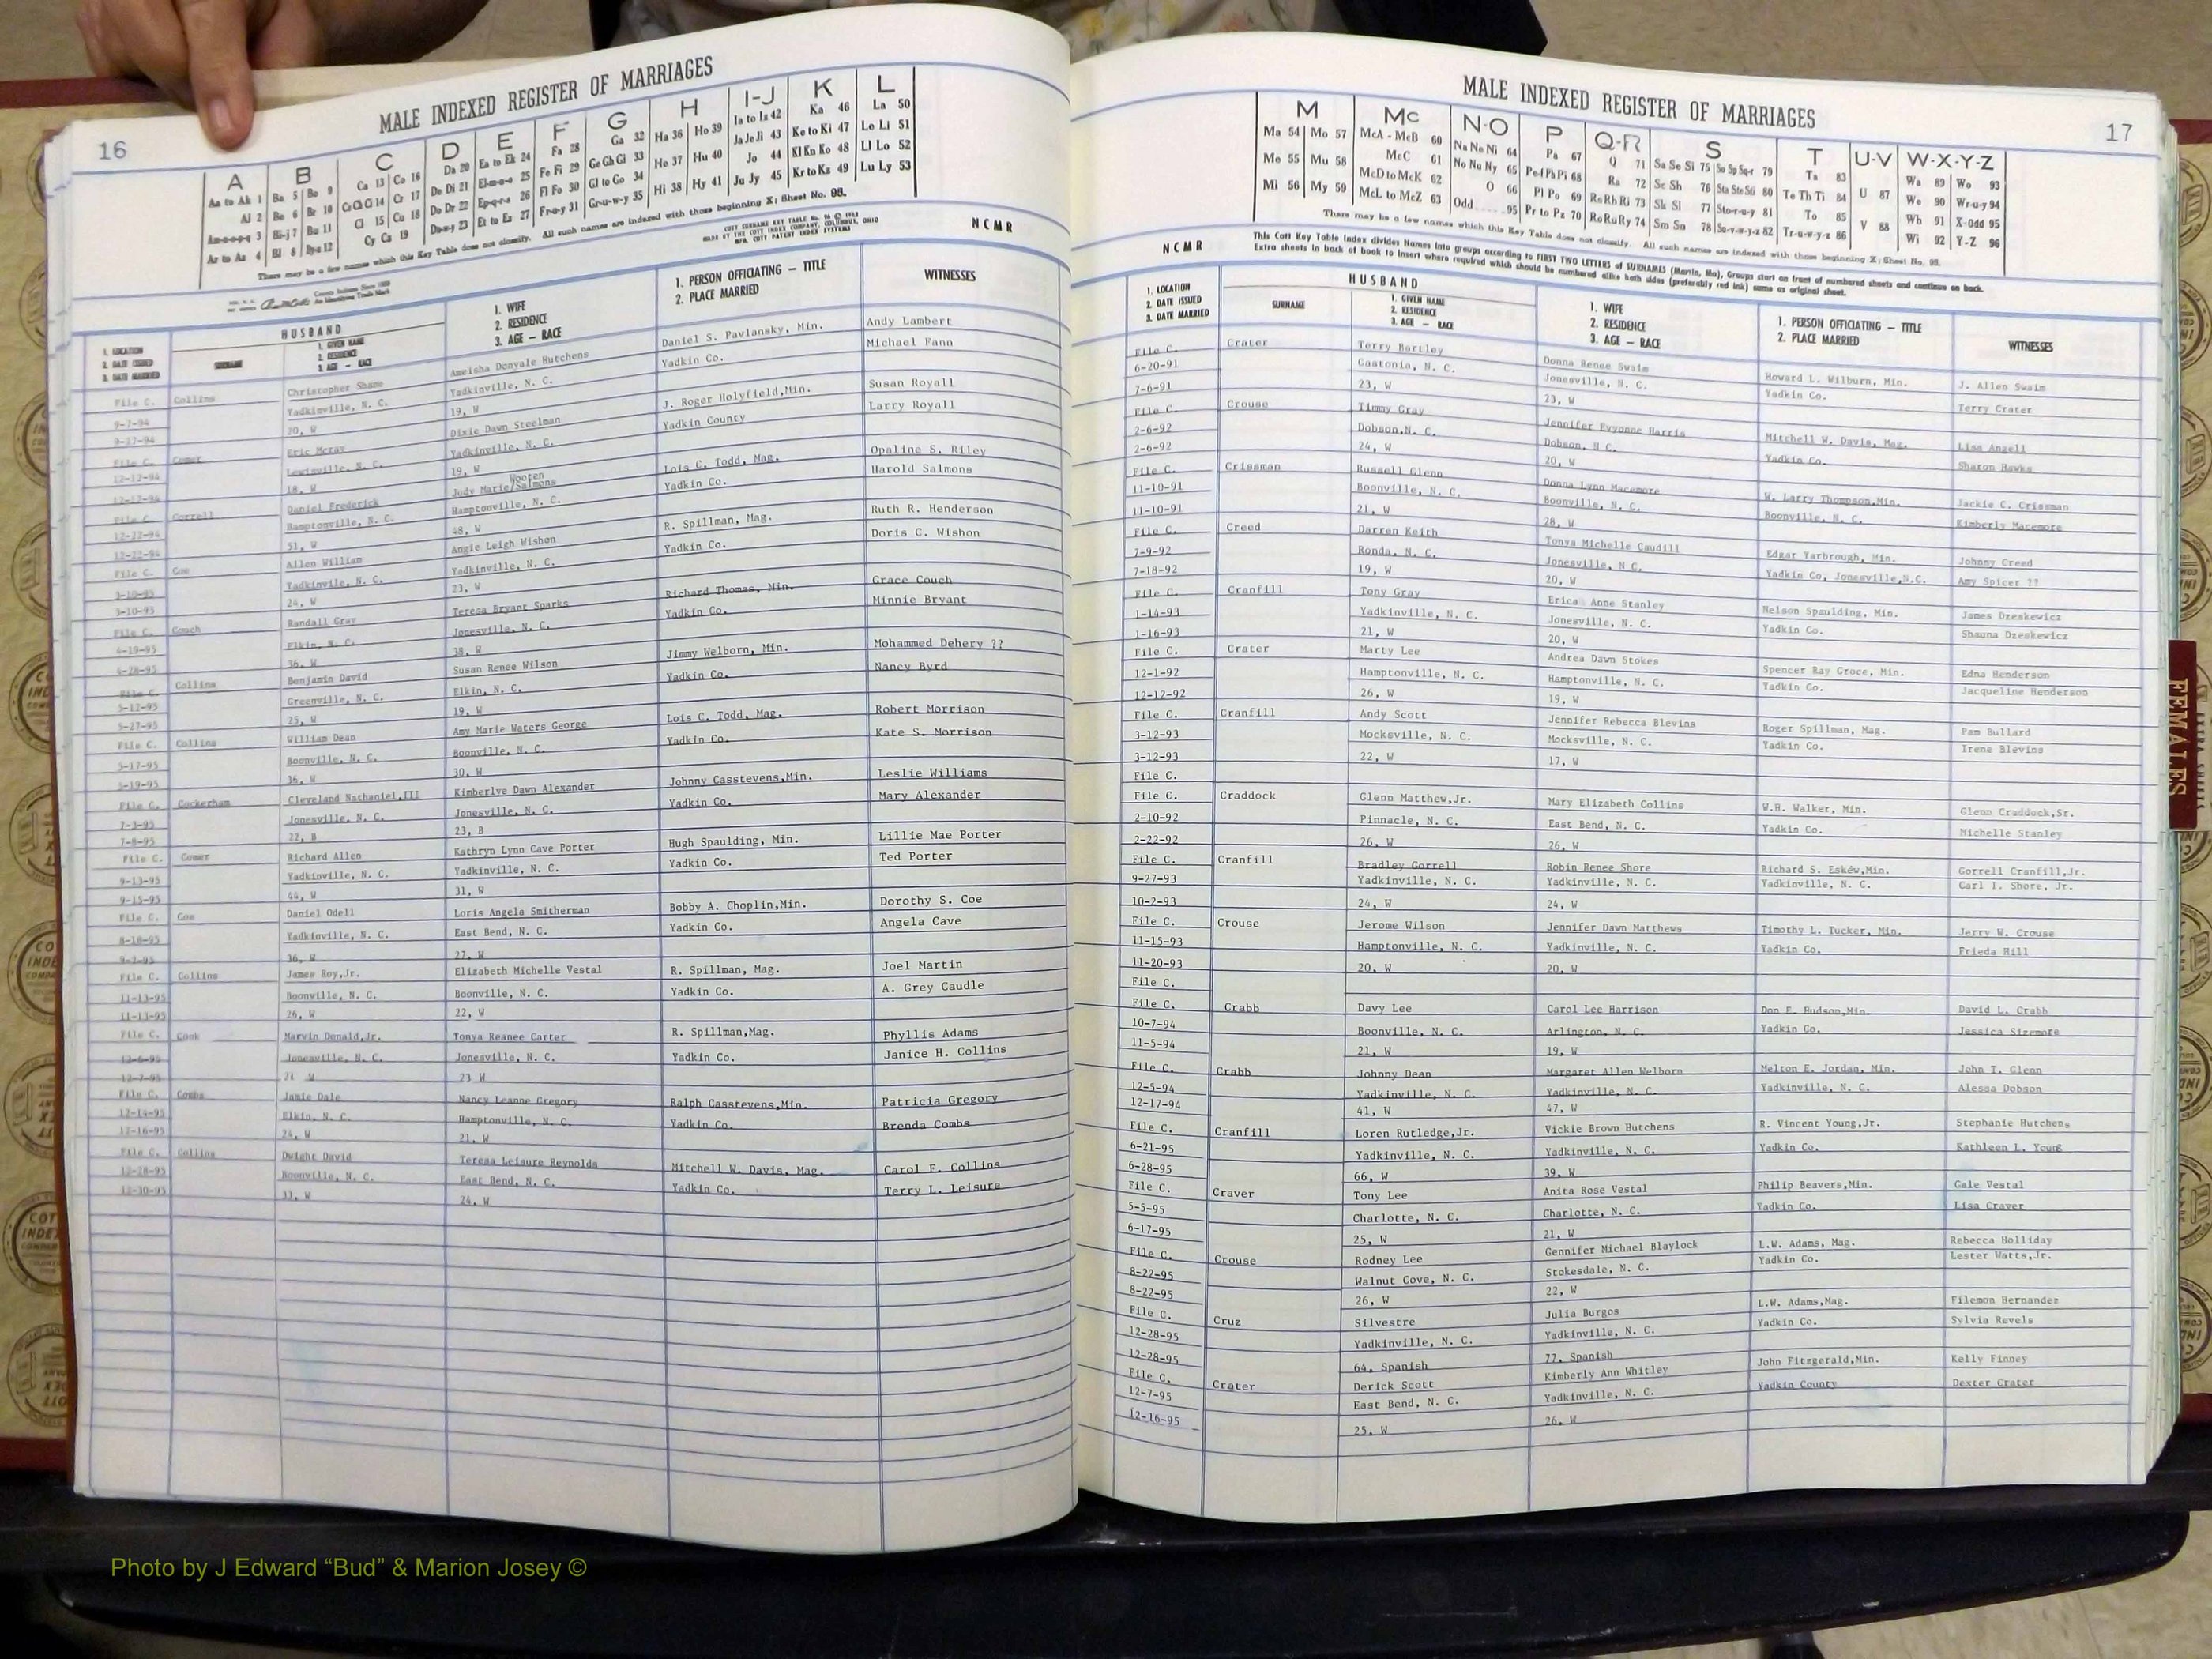 16
MALE INDEXED REGISTER OF MARRIAGES
A B C D E F G H I-J K L
Aa to Ak 1 Ba 5 Bo 9 Ca 13 Co 16 Da 20 Ea to Ek 24 Fa 28 Ga 32 Ha 36 Ho 39 Ia to Iz 42 Ka 46 La 50
Al 2 Be 6 Br 10 Ce Ch Ci 14 Cr 17 De Di 21 El-m-n-o 25 Fe Fi 29 Ge Gh Gi 33 He 37 Hu 40 Ja Je Ji 43 Ke to Ki 47 Le Li 51
Am-n-o-p-q 3 Bi-j 7 Bu 11 Cl 15 Cu 18 Do Dr 22 Ep-q-r-s 26 Fl Fo 30 Gl to Go 34 Hi 38 Hy 41 Jo 44 Kl Kn Ko 48 Ll Lo 52
Ar to Az 4 Bl 8 By-z 12 Cy Cz 19 Du-w-y 23 Et to Ez 27 Fr-u-y 31 Gr-u-w-y 35 Ju Jy 45 Kr to Kz 49 Lu Ly 53
There may be a few names which this Key Table does not classify. All such names are indexed with those beginning X; Sheet No. 98.
NCMR
1. LOCATION
2. DATE ISSUED
3. DATE MARRIED
HUSBAND
SURNAME
1. GIVEN NAME
2. RESIDENCE
3. AGE — RACE
1. WIFE
2. RESIDENCE
3. AGE — RACE
1. PERSON OFFICIATING — TITLE
2. PLACE MARRIED
WITNESSES
File C. Collins Christopher Shane Ameisha Donyale Hutchens Daniel S. Pavlansky, Min. Andy Lambert
9-7-94 Yadkinville, N. C. Yadkinville, N. C. Yadkin Co. Michael Fann
9-17-94 20, W 19, W
File C. Comer Eric Mcray Dixie Dawn Steelman J. Roger Holyfield,Min. Susan Royall
12-12-94 Lewisville, N. C. Yadkinville, N. C. Yadkin County Larry Royall
12-12-94 18, W 19, W
File C. Correll Daniel Frederick Judy Marie/Salmons Wooten Lois C. Todd, Mag. Opaline S. Riley
12-22-94 Hamptonville, N. C. Hamptonville, N. C. Yadkin Co. Harold Salmons
12-22-94 51, W 48, W
File C. Coe Allen William Angie Leigh Wishon R. Spillman, Mag. Ruth R. Henderson
3-10-95 Yadkinvile, N. C. Yadkinville, N. C. Yadkin Co. Doris C. Wishon
3-10-95 24, W 23, W
File C. Couch Randall Gray Teresa Bryant Sparks Richard Thomas, Min. Grace Couch
6-19-95 Elkin, N. C. Jonesville, N. C. Yadkin Co. Minnie Bryant
6-28-95 36, W 38, W
File C. Collins Benjamin David Susan Renee Wilson Jimmy Welborn, Min. Mohammed Dehery ??
5-12-95 Greenville, N. C. Elkin, N. C. Yadkin Co. Nancy Byrd
5-27-95 25, W 19, W
File C. Collins William Dean Amy Marie Waters George Lois C. Todd, Mag. Robert Morrison
5-17-95 Boonville, N. C. Boonville, N. C. Yadkin Co. Kate S. Morrison
5-19-95 36, W 30, W
File C. Cockerham Cleveland Nathaniel,III Kimberlye Dawn Alexander Johnny Casstevens,Min. Leslie Williams
7-3-95 Jonesville, N. C. Jonesville, N. C. Yadkin Co. Mary Alexander
7-8-95 22, B 23, B
File C. Comer Richard Allen Kathryn Lynn Cave Porter Hugh Spaulding, Min. Lillie Mae Porter
9-13-95 Yadkinville, N. C. Yadkinville, N. C. Yadkin Co. Ted Porter
9-15-95 44, W 31, W
File C. Coe Daniel Odell Loris Angela Smitherman Bobby A. Choplin,Min. Dorothy S. Coe
8-18-95 Yadkinville, N. C. East Bend, N. C. Yadkin Co. Angela Cave
9-2-95 36, W 27, W
File C. Collins James Roy,Jr. Elizabeth Michelle Vestal R. Spillman, Mag. Joel Martin
11-13-95 Boonville, N. C. Boonville, N. C. Yadkin Co. A. Grey Caudle
11-13-95 26, W 22, W
File C. Cook Marvin Donald,Jr. Tonya Reanee Carter R. Spillman,Mag. Phyllis Adams
12-6-95 Jonesville, N. C. Jonesville, N. C. Yadkin Co. Janice H. Collins
12-7-95 21 W 23 W
File C. Combs Jamie Dale Nancy Leanne Gregory Ralph Casstevens,Min. Patricia Gregory
12-14-95 Elkin, N. C. Hamptonville, N. C. Yadkin Co. Brenda Combs
12-16-95 24, W 21, W
File C. Collins Dwight David Teresa Leisure Reynolds Mitchell W. Davis, Mag. Carol F. Collins
12-28-95 Boonville, N. C. East Bend, N. C. Yadkin Co. Terry L. Leisure
12-30-95 33, W 24, W
17
MALE INDEXED REGISTER OF MARRIAGES
M Mc N-O P Q-R S T U-V W-X-Y-Z
Ma 54 Mo 57 McA - McB 60 Na Ne Ni 64 Pa 67 Q 71 Sa Se Si 75 So Sp Sq-r 79 Ta 83 U 87 Wa 89 Wo 93
Me 55 Mu 58 McC 61 No Nu Ny 65 Pe-f Ph Pi 68 Ra 72 Sc Sh 76 Sta Ste Sti 80 Te Th Ti 84 V 88 We 90 Wr-u-y 94
Mi 56 My 59 McD to McK 62 O 66 Pl Po 69 Re Rh Ri 73 Sk Sl 77 Sto-r-u-y 81 To 85 Wh 91 X-Odd 95
McL to McZ 63 Odd 95 Pr to Pz 70 Ro Ru Ry 74 Sm Sn 78 Su-v-w-y-z 82 Tr-u-w-y-z 86 Wi 92 Y-Z 96
There may be a few names which this Key Table does not classify. All such names are indexed with those beginning X; Sheet No. 98.
NCMR
This Cott Key Table Index divides Names into groups according to FIRST TWO LETTERS of SURNAMES (Martin, Ma), Groups start on front of numbered sheets and continue on back.
Extra sheets in back of book to insert where required which should be numbered alike both sides (preferably red ink) same as original sheet.
1. LOCATION
2. DATE ISSUED
3. DATE MARRIED
HUSBAND
SURNAME
1. GIVEN NAME
2. RESIDENCE
3. AGE — RACE
1. WIFE
2. RESIDENCE
3. AGE — RACE
1. PERSON OFFICIATING — TITLE
2. PLACE MARRIED
WITNESSES
File C. Crater Terry Hartley Donna Renee Swaim Howard L. Wilburn, Min. J. Allen Swaim
6-20-91 Gastonia, N. C. Jonesville, N. C. Yadkin Co. Terry Crater
7-6-91 23, W 23, W
File C. Crouse Timmy Gray Jennifer Evyonne Harris Mitchell W. Davis, Mag. Lisa Angell
2-6-92 Dobson,N. C. Dobson, N C. Yadkin Co. Sharon Hawks
2-6-92 24, W 20, W
File C. Crissman Russell Glenn Donna Lynn Macemore W. Larry Thompson,Min. Jackie C. Crissman
11-10-91 Boonville, N. C. Boonville, N. C. Boonville, N. C. Kimberly Macemore
11-10-91 21, W 28, W
File C. Creed Darren Keith Tonya Michelle Caudill Edgar Yarbrough, Min. Johnny Creed
7-9-92 Ronda, N. C. Jonesville, N C. Yadkin Co, Jonesville,N.C. Amy Spicer ??
7-18-92 19, W 20, W
File C. Cranfill Tony Gray Erica Anne Stanley Nelson Spaulding, Min. James Dzeskewicz
1-14-93 Yadkinville, N. C. Jonesville, N. C. Yadkin Co. Shauna Dzeskewicz
1-16-93 21, W 20, W
File C. Crater Marty Lee Andrea Dawn Stokes Spencer Ray Groce, Min. Edna Henderson
12-1-92 Hamptonville, N. C. Hamptonville, N. C. Yadkin Co. Jacqueline Henderson
12-12-92 26, W 19, W
File C. Cranfill Andy Scott Jennifer Rebecca Blevins Roger Spillman, Mag. Pam Bullard
3-12-93 Mocksville, N. C. Mocksville, N. C. Yadkin Co. Irene Blevins
3-12-93 22, W 17, W
File C.
File C. Craddock Glenn Matthew,Jr. Mary Elizabeth Collins W.H. Walker, Min. Glenn Craddock,Sr.
2-10-92 Pinnacle, N. C. East Bend, N. C. Yadkin Co. Michelle Stanley
2-22-92 26, W 26, W
File C. Cranfill Bradley Gorrell Robin Renee Shore Richard S. Eskew,Min. Gorrell Cranfill,Jr.
9-27-93 Yadkinville, N. C. Yadkinville, N. C. Yadkinville, N. C. Carl I. Shore, Jr.
10-2-93 24, W 24, W
File C. Crouse Jerome Wilson Jennifer Dawn Matthews Timothy L. Tucker, Min. Jerry W. Crouse
11-15-93 Hamptonville, N. C. Yadkinville, N. C. Yadkin Co. Frieda Hill
11-20-93 20, W 20, W
File C.
File C. Crabb Davy Lee Carol Lee Harrison Don E. Hudson,Min. David L. Crabb
10-7-94 Boonville, N. C. Arlington, N. C. Yadkin Co. Jessica Sizemore
11-5-94 21, W 19, W
File C. Crabb Johnny Dean Margaret Allen Welborn Melton E. Jordan, Min. John T. Glenn
12-5-94 Yadkinville, N. C. Yadkinville, N. C. Yadkinville, N. C. Alessa Dobson
12-17-94 41, W 47, W
File C. Cranfill Loren Rutledge,Jr. Vickie Brown Hutchens R. Vincent Young,Jr. Stephanie Hutchens
6-21-95 Yadkinville, N. C. Yadkinville, N. C. Yadkin Co. Kathleen L. Young
6-28-95 66, W 39, W
File C. Craver Tony Lee Anita Rose Vestal Philip Beavers,Min. Gale Vestal
5-5-95 Charlotte, N. C. Charlotte, N. C. Yadkin Co. Lisa Craver
6-17-95 25, W 21, W
File C. Crouse Rodney Lee Gennifer Michael Blaylock L.W. Adams, Mag. Rebecca Holliday
8-22-95 Walnut Cove, N. C. Stokesdale, N. C. Yadkin Co. Lester Watts,Jr.
8-22-95 26, W 22, W
File C. Cruz Silvestre Julia Burgos L.W. Adams,Mag. Filemon Hernandez
12-28-95 Yadkinville, N. C. Yadkinville, N. C. Yadkin Co. Sylvia Revels
12-28-95 64, Spanish 77, Spanish
File C. Crater Derick Scott Kimberly Ann Whitley John Fitzgerald,Min. Kelly Finney
12-7-95 East Bend, N. C. Yadkinville, N. C. Yadkin County Dexter Crater
12-16-95 25, W 26, W
FEMALES
Photo by J Edward “Bud” & Marion Josey ©